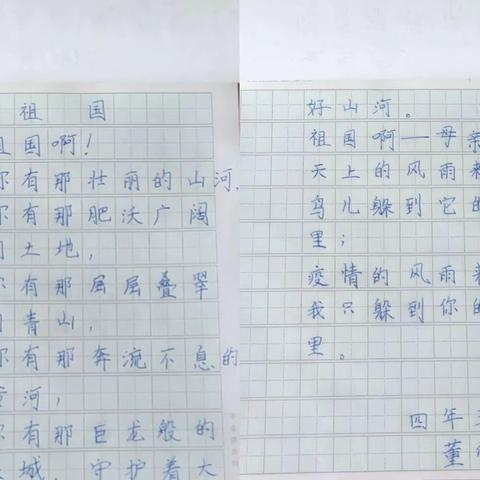 祖国
祖国啊！
你有那壮丽的山河，
你有那肥沃广阔
的土地，
你有那层层叠翠
的青山，
你有那奔流不息的
黄河，
你有那巨龙般的
长城，守护着大
好山河。
祖国啊——母亲
天上的风雨来
鸟儿躲到它的
里；
疫情的风雨来
我只躲到你的
里。
四年
董